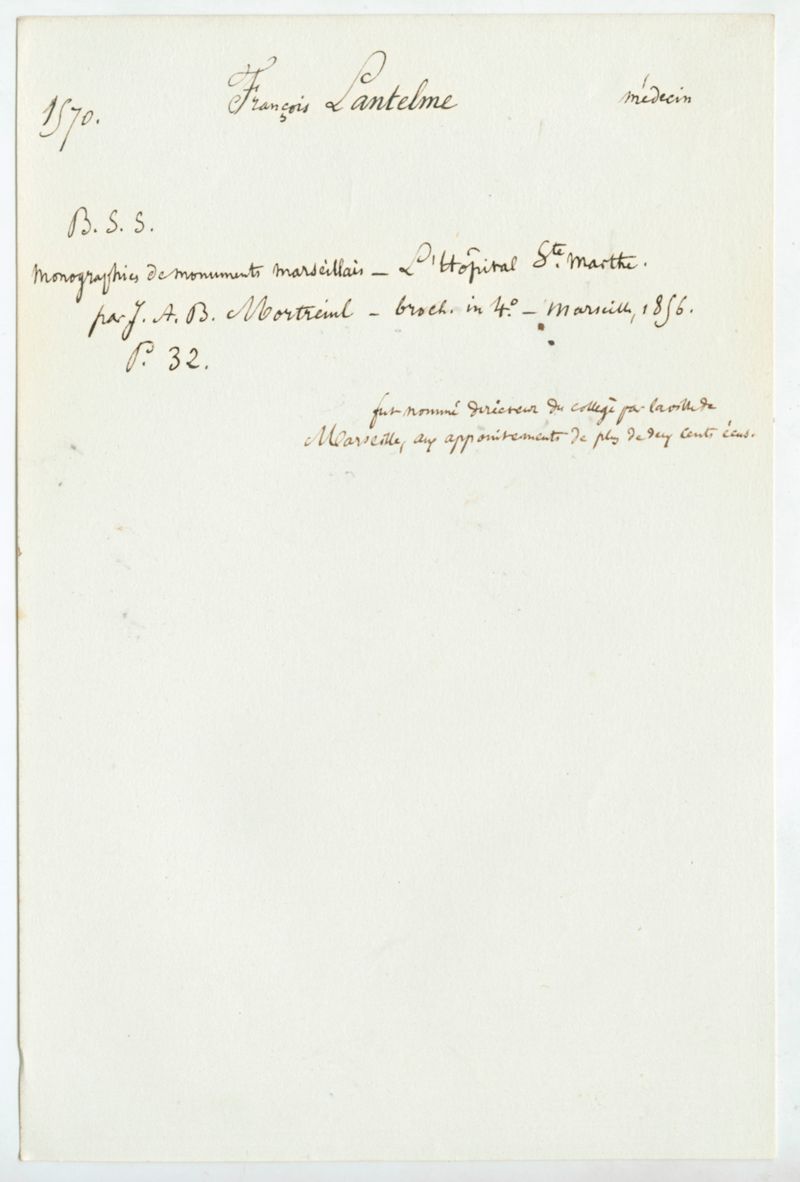 1570. François Lantelme médecin
B. S. S.
Monographies de monuments marseillais — L'Hôpital Ste. Marthe.
par J. A. B. Mortreuil — broch. in 4.o — Marseille, 1856.
P. 32.
fut nommé directeur du collège par la ville de
Marseille, aux appointements de plus de deux cents écus.